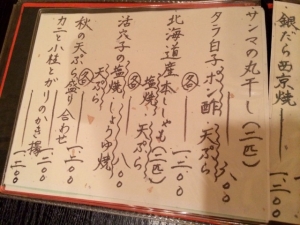 銀だら西京焼
サンマの丸干し(二匹)
タラ白子ポン酢・天ぷら
各 一、二〇〇
北海道産本ししゃも(二匹)
塩焼・天ぷら
各 一、二〇〇
活穴子の塩焼・しょうゆ焼
天ぷら
各
秋の天ぷら盛り合わせ
一、二〇〇
カニと小柱とがりのかき揚
一、二〇〇